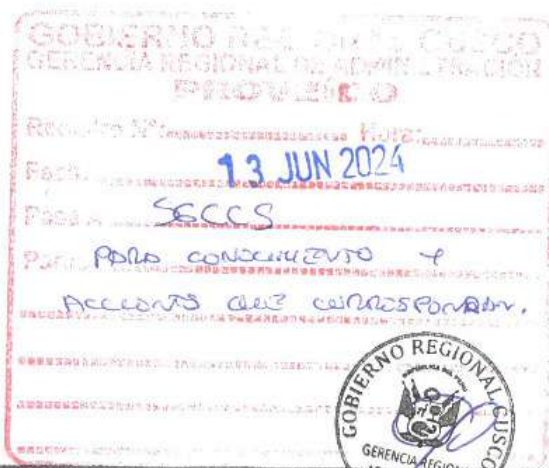 GOBIERNO REGIONAL CUSCO
GERENCIA REGIONAL DE ADMINISTRACIÓN
PROVEÍDO
Registro N°: Hora:
Fecha: 13 JUN 2024
Pase a SGCCS
Para: PARA CONOCIMIENTO Y
ACCIONES QUE CORRESPONDAN.
GOBIERNO REGIONAL CUSCO
REPÚBLICA DEL PERÚ
GERENCIA REGIONAL